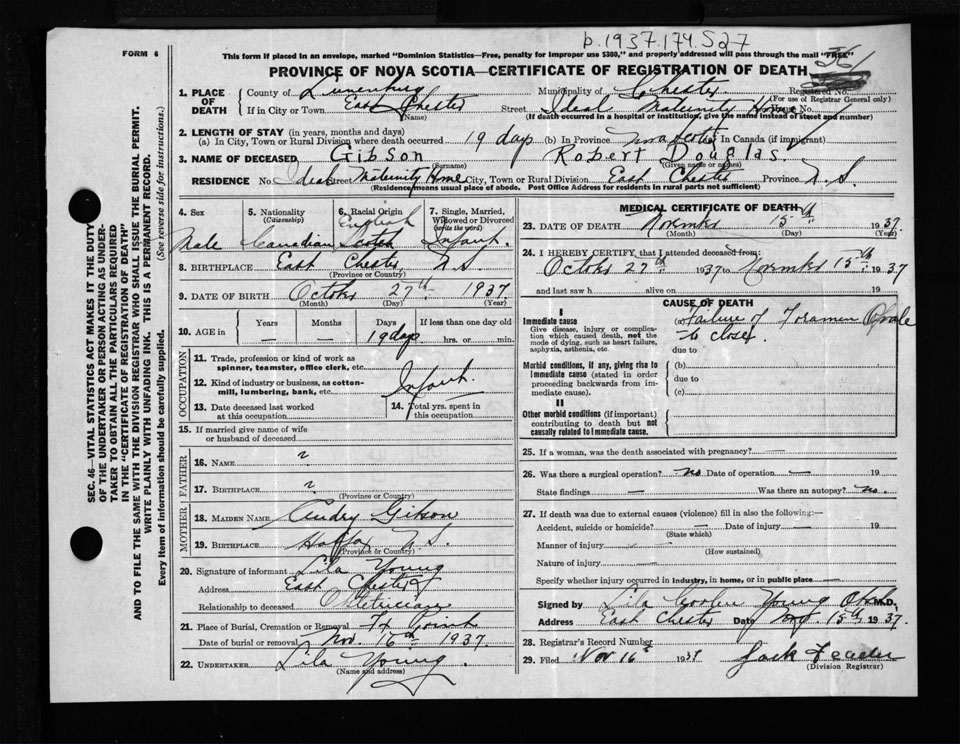 b.1937.174.527
FORM 6
This form if placed in an envelope, marked "Dominion Statistics—Free, penalty for improper use $300," and properly addressed will pass through the mail "FREE"
PROVINCE OF NOVA SCOTIA—CERTIFICATE OF REGISTRATION OF DEATH
Registered No.
(For use of Registrar General only)
1. PLACE OF DEATH
County of Lunenburg Municipality of Chester
If in City or Town East Chester Street Ideal Maternity Home House No.
(Name) (If death occurred in a hospital or institution, give the name instead of street and number)
2. LENGTH OF STAY (in years, months and days)
(a) In City, Town or Rural Division where death occurred 19 days (b) In Province Nova Scotia In Canada (if immigrant)
3. NAME OF DECEASED Gibson Robert Douglas.
(Surname) (Given name or names)
RESIDENCE No. Ideal Street Maternity Home City, Town or Rural Division East Chester Province N.S.
(Residence means usual place of abode. Post Office Address for residents in rural parts not sufficient)
4. Sex
Male
5. Nationality
(Citizenship)
Canadian
6. Racial Origin
English
Scotch
7. Single, Married, Widowed or Divorced
(write the word)
Infant.
8. BIRTHPLACE East Chester, N.S.
(Province or Country)
9. DATE OF BIRTH October 27th 1937.
(Month) (Day) (Year)
10. AGE in
Years Months Days If less than one day old
— — 19 days hrs. or min.
OCCUPATION
11. Trade, profession or kind of work as spinner, teamster, office clerk, etc.
12. Kind of industry or business, as cotton-mill, lumbering, bank, etc. Infant.
13. Date deceased last worked at this occupation
14. Total yrs. spent in this occupation
15. If married give name of wife or husband of deceased
FATHER
16. NAME ?
17. BIRTHPLACE ?
(Province or Country)
MOTHER
18. MAIDEN NAME Audry Gibson
19. BIRTHPLACE Halifax N.S.
(Province or Country)
20. Signature of informant Lila Young
Address East Chester
Relationship to deceased Obstetrician
21. Place of Burial, Cremation or Removal Fx Point
Date of burial or removal Nov. 16th 1937.
22. UNDERTAKER Lila Young.
(Name and address)
MEDICAL CERTIFICATE OF DEATH
23. DATE OF DEATH November 15th 1937.
(Month) (Day) (Year)
24. I HEREBY CERTIFY, that I attended deceased from:
October 27th 1937 to November 15th 1937
and last saw h alive on 19
CAUSE OF DEATH
I
Immediate cause
Give disease, injury or complication which caused death, not the mode of dying, such as heart failure, asphyxia, asthenia, etc.
(a) Failure of Foramen Ovale
to close.
due to
Morbid conditions, if any, giving rise to immediate cause (stated in order proceeding backwards from immediate cause).
(b)
due to
(c)
II
Other morbid conditions (if important) contributing to death but not causally related to immediate cause.
25. If a woman, was the death associated with pregnancy? —
26. Was there a surgical operation? no Date of operation — 19
State findings — Was there an autopsy? no.
27. If death was due to external causes (violence) fill in also the following:—
Accident, suicide or homicide? — Date of injury — 19
(State which)
Manner of injury —
(How sustained)
Nature of injury —
Specify whether injury occurred in industry, in home, or in public place —
Signed by Lila Coolen Young M.D.
Address East Chester Date Nov. 15th 1937.
28. Registrar's Record Number
29. Filed Nov 16th 1937 Jack
(Division Registrar)
SEC. 46—VITAL STATISTICS ACT MAKES IT THE DUTY
OF THE UNDERTAKER OR PERSON ACTING AS UNDER-
TAKER TO OBTAIN ALL THE PARTICULARS REQUIRED
IN THE "CERTIFICATE OF REGISTRATION OF DEATH"
AND TO FILE THE SAME WITH THE DIVISION REGISTRAR WHO SHALL ISSUE THE BURIAL PERMIT.
WRITE PLAINLY WITH UNFADING INK. THIS IS A PERMANENT RECORD.
Every item of information should be carefully supplied. (See reverse side for instructions.)